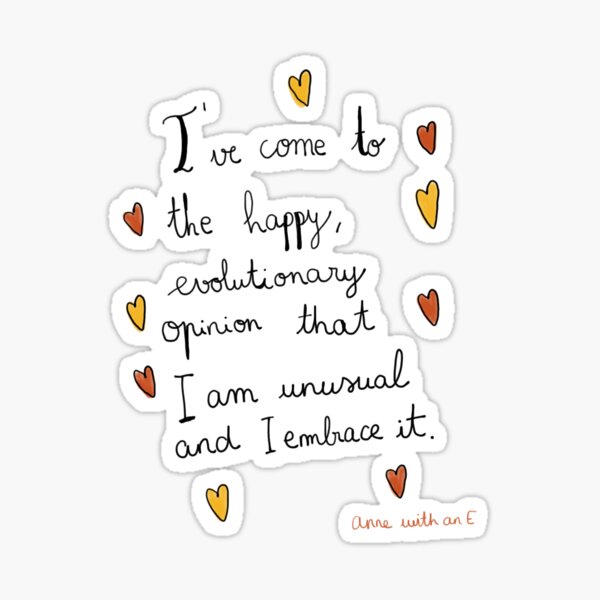 I've come to
the happy,
evolutionary
opinion that
I am unusual
and I embrace it.
anne with an E